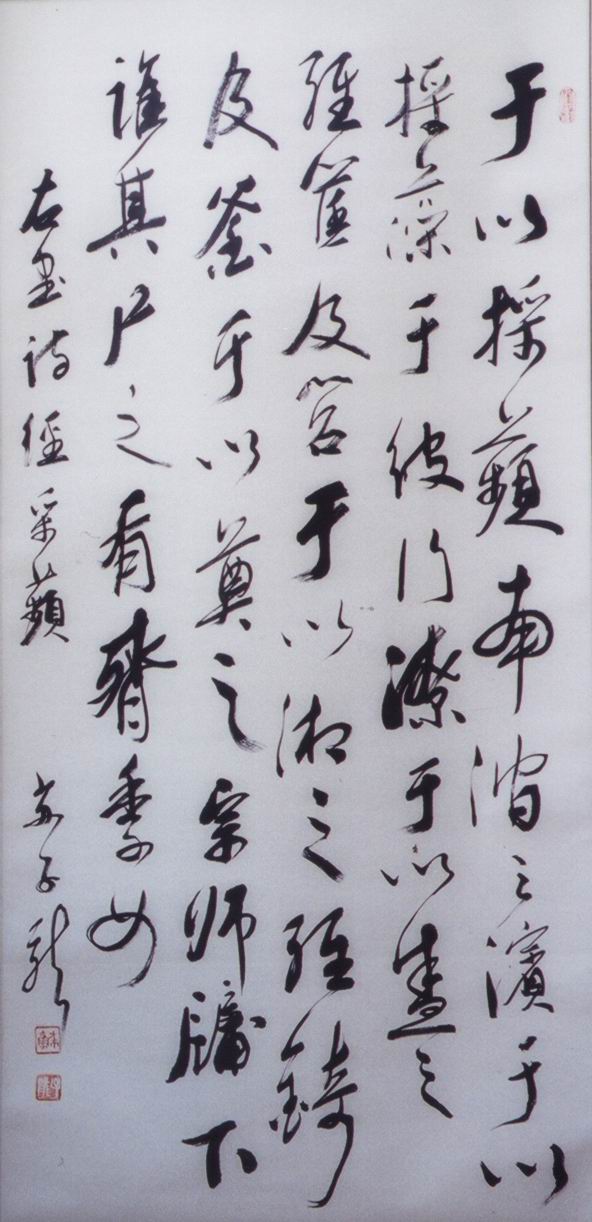 于以採蘋南澗之濱于以
採藻于彼行潦于以盛之
維筐及筥于以湘之維錡
及釜于以奠之宗師牖下
誰其尸之有齊季女
右書詩經采蘋 蘇子龍